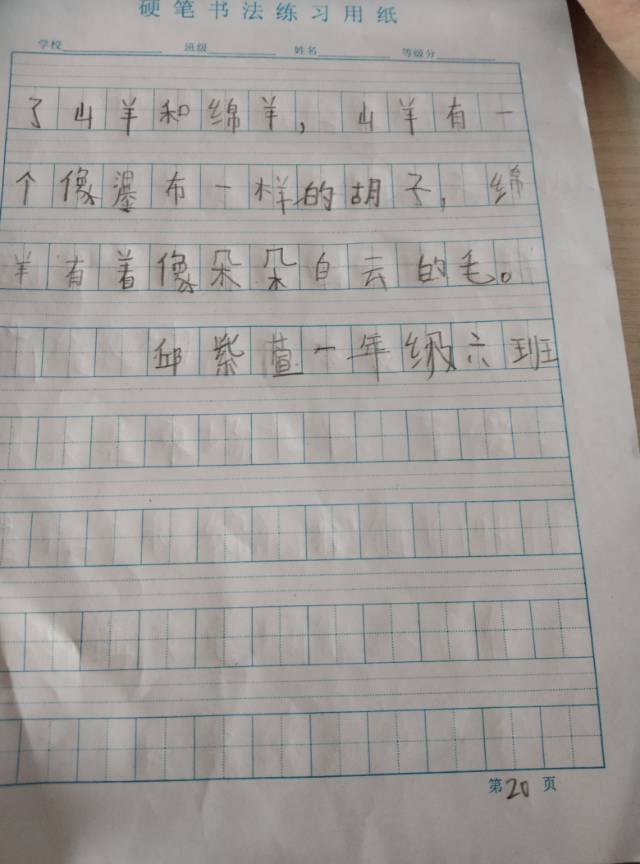 硬笔书法练习用纸
学校 班级 姓名 等级分
了山羊和绵羊，山羊有一
个像瀑布一样的胡子，绵
羊有着像朵朵白云的毛。
邱紫萱一年级六班
第20页